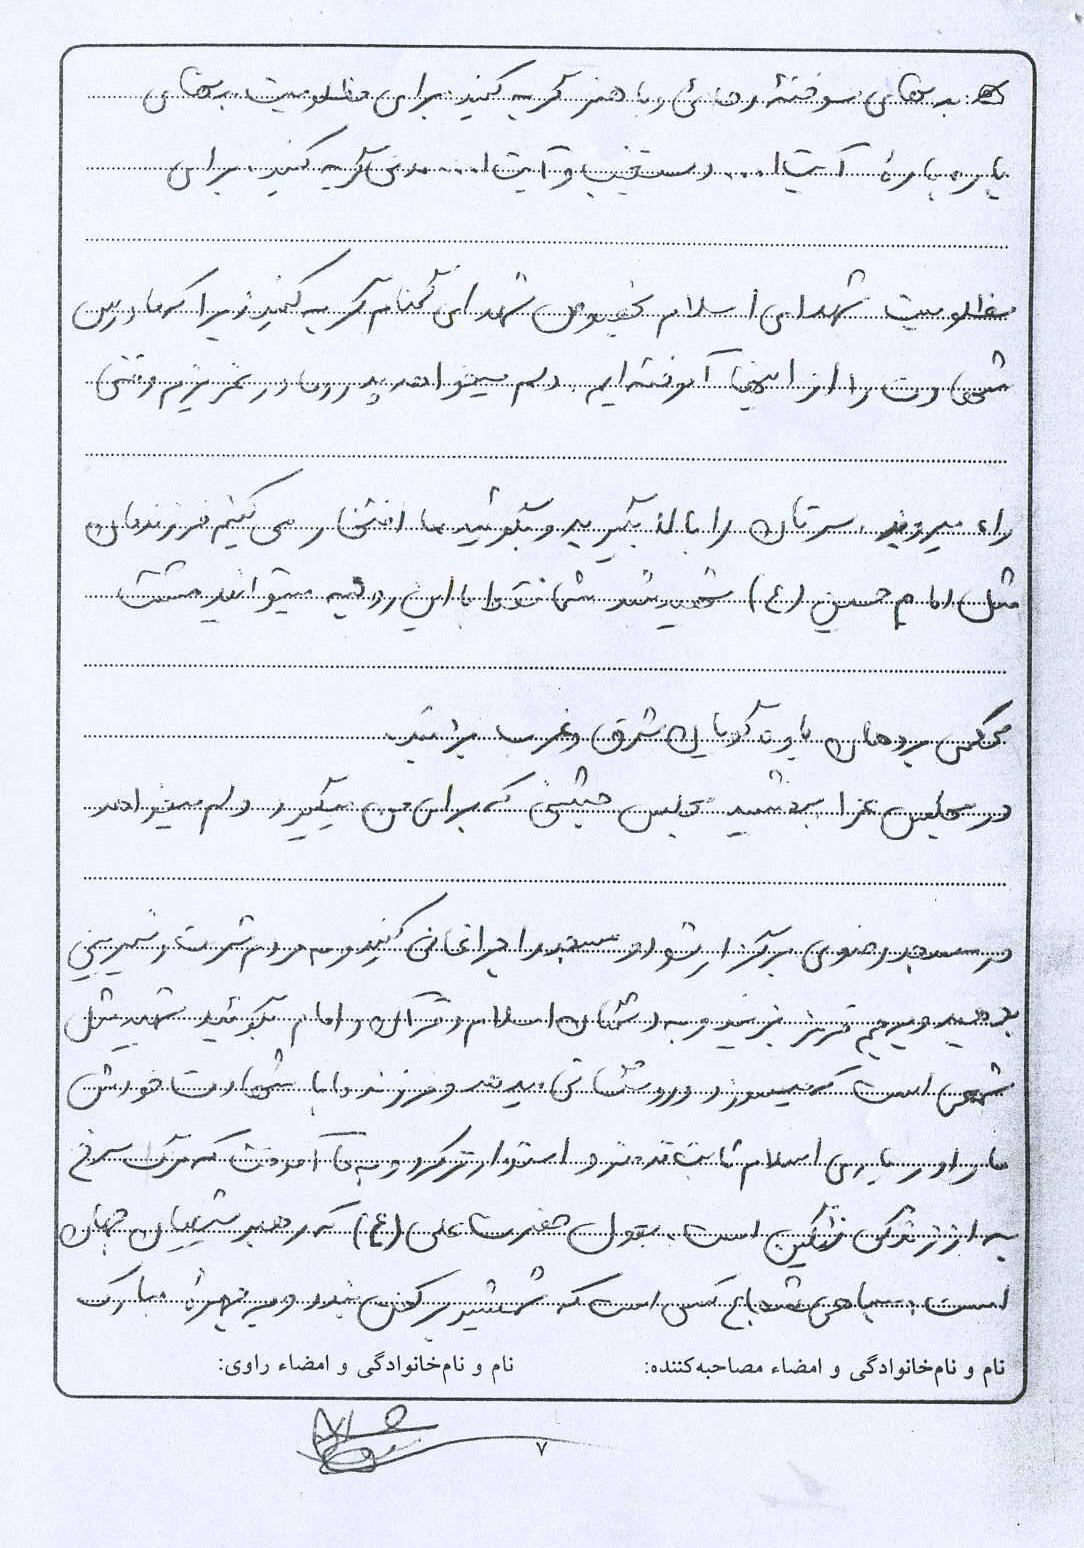 بدنهای سوخته رجائی و باهنر گریه کنید. برای مظلومیت بدنهای
پاره پاره آیت ا... دستغیب و آیت ا... مدنی گریه کنید. برای
مظلومیت شهدای اسلام بخصوص شهدای گمنام گریه کنید زیرا که ما درس
شهادت را از اینها آموخته‌ایم. دلم میخواهد پدر و مادر عزیزم وقتی
راه میروند. سرتان را بالا بگیرید و بگوئید ما افتخار می کنیم فرزندمان
مثل امام حسین (ع) شهید شد شما فقط با این روحیه میتوانید مشت
محکمی بر دهان یاوه گویان شرق و غرب بزنید.
در مجلس عزا بدهید مجلس جشنی که برای من میگیرد. دلم میخواهد
در مسجد رضوی برگزار شود. مسجد را چراغانی کنید و به مردم شربت و شیرینی
بدهید و پرچم قرمز بزنید و به دشمنان اسلام و قرآن و امام بگوئید شهید مثل
شمعی است که میسوزد و روشنائی میدهد و فرزند ما با شهادت خودش
ما را در یاری اسلام ثابت قدم‌تر و استوارتر کرد و به ما آموخت که مرگ سرخ
به از زندگی ننگین است. بقول حضرت علی (ع) که رهبر شیعیان جهان
است. سپاهی شجاع کسی است که شمشیر بر کفن بندد و بر چهره مبارک
نام و نام‌خانوادگی و امضاء مصاحبه‌کننده: نام و نام‌خانوادگی و امضاء راوی:
۷